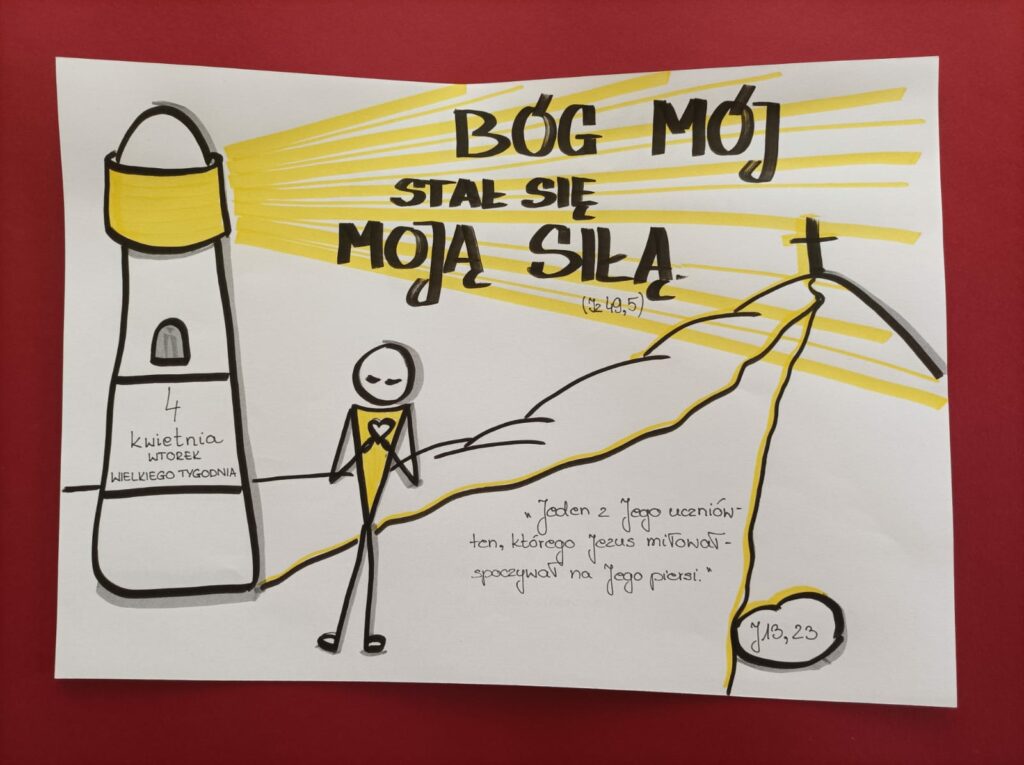 BÓG MÓJ
STAŁ SIĘ
MOJĄ SIŁĄ.
(Iz 49,5)
4
kwietnia
WTOREK
WIELKIEGO TYGODNIA
"Jeden z Jego uczniów-
ten, którego Jezus miłował-
spoczywał na Jego piersi."
J 13, 23